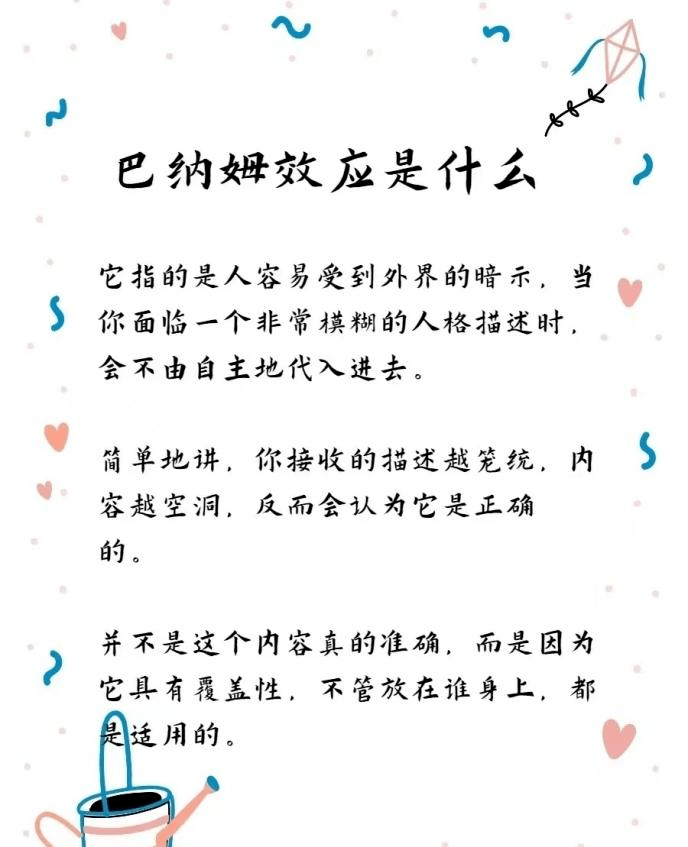 巴纳姆效应是什么
它指的是人容易受到外界的暗示，当
你面临一个非常模糊的人格描述时，
会不由自主地代入进去。
简单地讲，你接收的描述越笼统，内
容越空洞，反而会认为它是正确
的。
并不是这个内容真的准确，而是因为
它具有覆盖性，不管放在谁身上，都
是适用的。